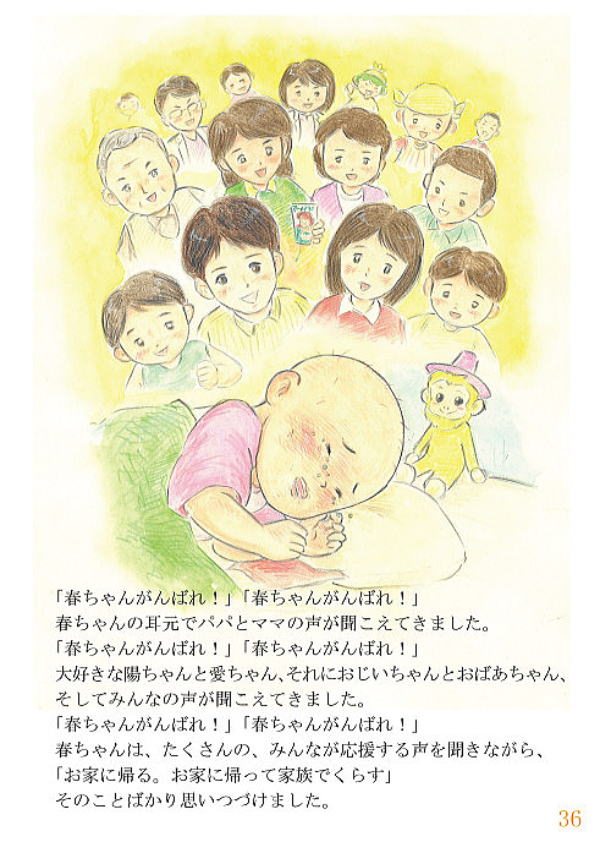 「春ちゃんがんばれ！」「春ちゃんがんばれ！」
春ちゃんの耳元でパパとママの声が聞こえてきました。
「春ちゃんがんばれ！」「春ちゃんがんばれ！」
大好きな陽ちゃんと愛ちゃん、それにおじいちゃんとおばあちゃん、
そしてみんなの声が聞こえてきました。
「春ちゃんがんばれ！」「春ちゃんがんばれ！」
春ちゃんは、たくさんの、みんなが応援する声を聞きながら、
「お家に帰る。お家に帰って家族でくらす」
そのことばかり思いつづけました。
36